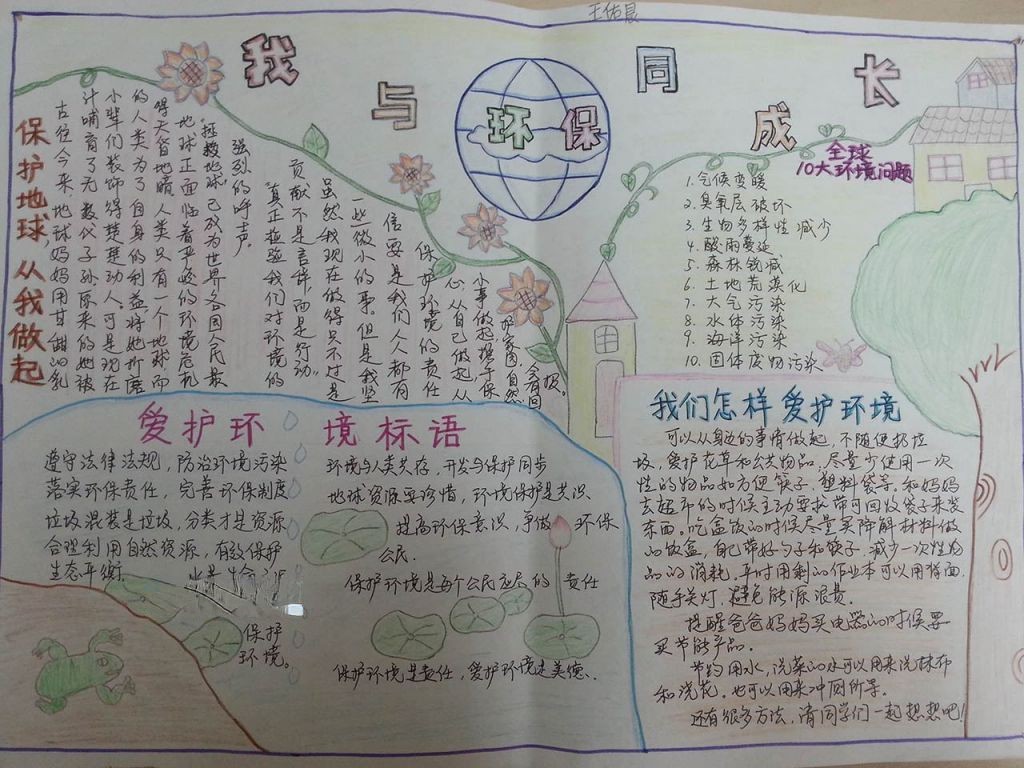 王佑晨
我与环保同成长
保护地球,从我做起
古往今来,地球妈妈用甘甜的乳
汁哺育了无数代子孙.原来的她被
小辈们装饰得楚楚动人.可是现在
的人类为了自身的利益,将她折磨
得天昏地暗.人类只有一个地球;而
地球正面临着严峻的环境危机
“拯救地球”已成为世界各国人民最
强烈的呼声.
真正检验我们对环境的
贡献不是言辞,而是行动.
虽然我现在做得只不过是
一些微小的事.但是我坚
信要是我们人人都有
保护环境的责任
心,从自己做起,从
小事做起,携手保
护家园,自然
会
回
报.
全球
10大环境问题
1.气候变暖
2.臭氧层破坏
3.生物多样性减少
4.酸雨蔓延
5.森林锐减
6.土地荒漠化
7.大气污染
8.水体污染
9.海洋污染
10.固体废物污染
爱护环境标语
遵守法律法规,防治环境污染
落实环保责任,完善环保制度
垃圾混装是垃圾,分类才是资源
合理利用自然资源,有效保护
生态平衡
保护
环境。
环境与人类共存,开发与保护同步
地球资源要珍惜,环境保护是共识.
提高环保意识,争做环保
公民.
保护环境是每个公民应尽的责任
保护环境是责任,爱护环境是美德.
我们怎样爱护环境
可以从身边的事情做起,不随便扔垃
圾,爱护花草和公共物品,尽量少使用一次
性的物品如方便筷子,塑料袋等,和妈妈
去超市的时候主动要求带可回收袋子来装
东西。吃盒饭的时候尽量买降解材料做
的饭盒,自己带好勺子和筷子,减少一次性物
品的消耗.平时用剩的作业本可以用背面.
随手关灯,避免能源浪费.
提醒爸爸妈妈买电器的时候要
买节能产品.
节约用水,洗菜的水可以用来洗抹布
和浇花.也可以用来冲厕所等.
还有很多方法,请同学们一起想想吧!